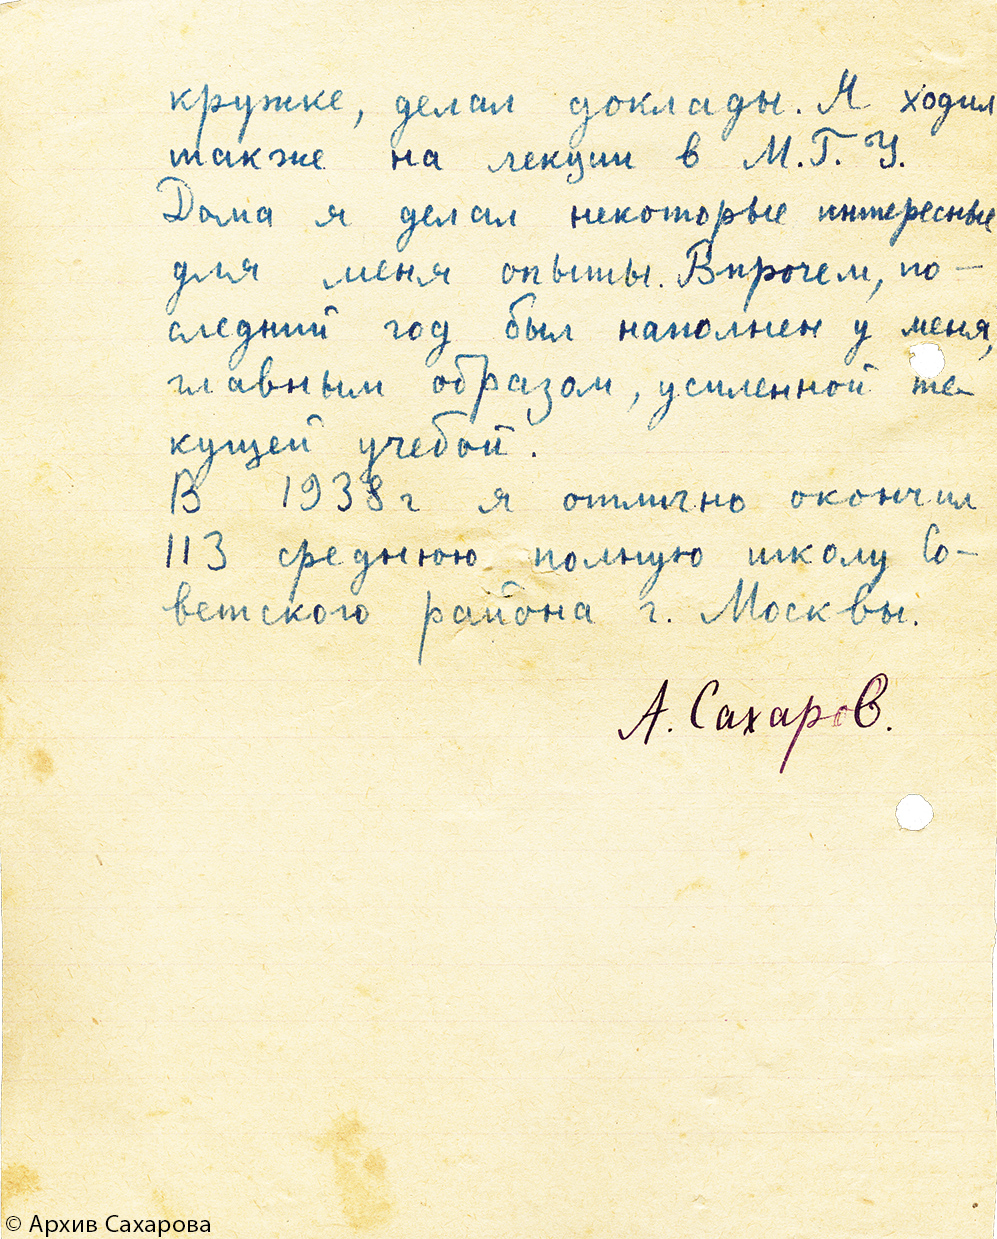 кружке, делал доклады. Я ходил
также на лекции в М.Г.У.
Дома я делал некоторые интересные
для меня опыты. Впрочем, по-
следний год был наполнен у меня,
главным образом, усиленной те-
кущей учебой.
В 1938 г я отлично окончил
113 среднюю полную школу Со-
ветского района г. Москвы.
А. Сахаров.
© Архив Сахарова